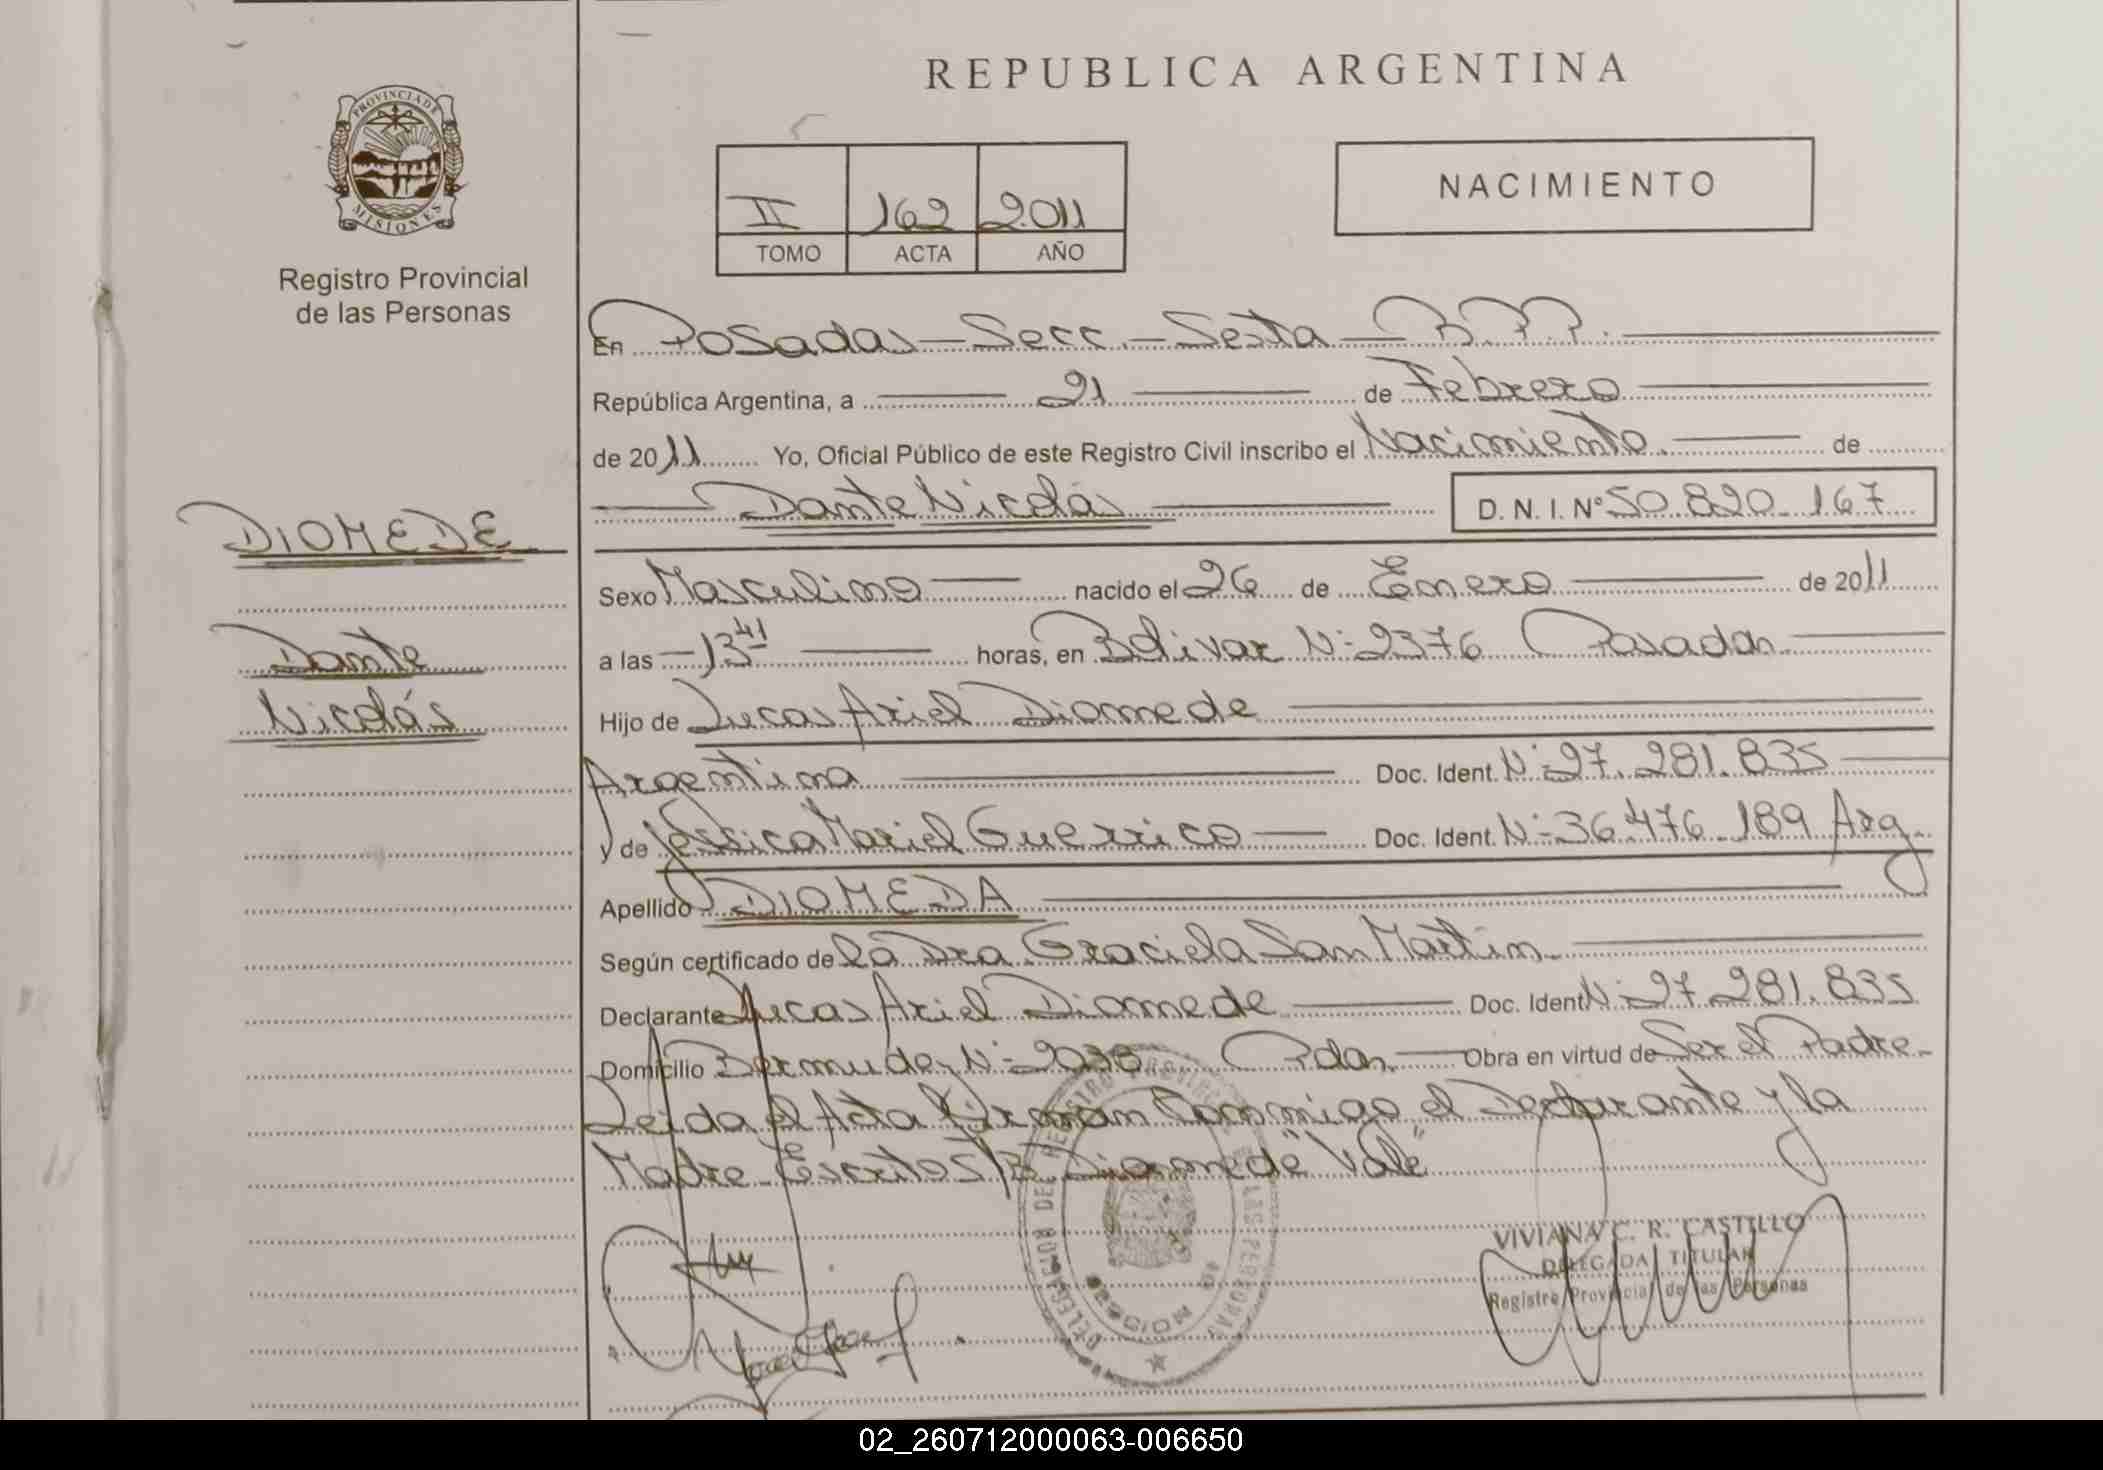 REPUBLICA ARGENTINA
PROVINCIA DE
MISIONES
Registro Provincial
de las Personas
II 162 2011
TOMO ACTA AÑO
NACIMIENTO
En Posadas - Secc. - Sexta - R.P.P.
República Argentina, a 21 de Febrero
de 2011 Yo, Oficial Público de este Registro Civil inscribo el Nacimiento. de
Dante Nicolás D. N. I. Nº 50.820.167
DIOMEDE
Dante
Nicolás
Sexo Masculino nacido el 26 de Enero de 2011
a las 13 41 horas, en Bolivar Nº 2376 Posadas
Hijo de Lucas Ariel Diomede
Argentina Doc. Ident. Nº 27.281.835
y de Jessica Mariel Guerrico Doc. Ident. Nº 36.476.189 Arg.
Apellido DIOMEDA
Según certificado de la Dra. Graciela San Martin
Declarante Lucas Ariel Diomede Doc. Ident. Nº 27.281.835
Domicilio Bermudez Nº Pdas. Obra en virtud de Ser el Padre.
Leida el Acta Firman Conmigo el Declarante y la
Madre. Escrito S/R Diomede "Vale"
VIVIANA C. R. CASTILLO
DELEGADA TITULAR
Registro Provincial de las Personas
02_260712000063-006650